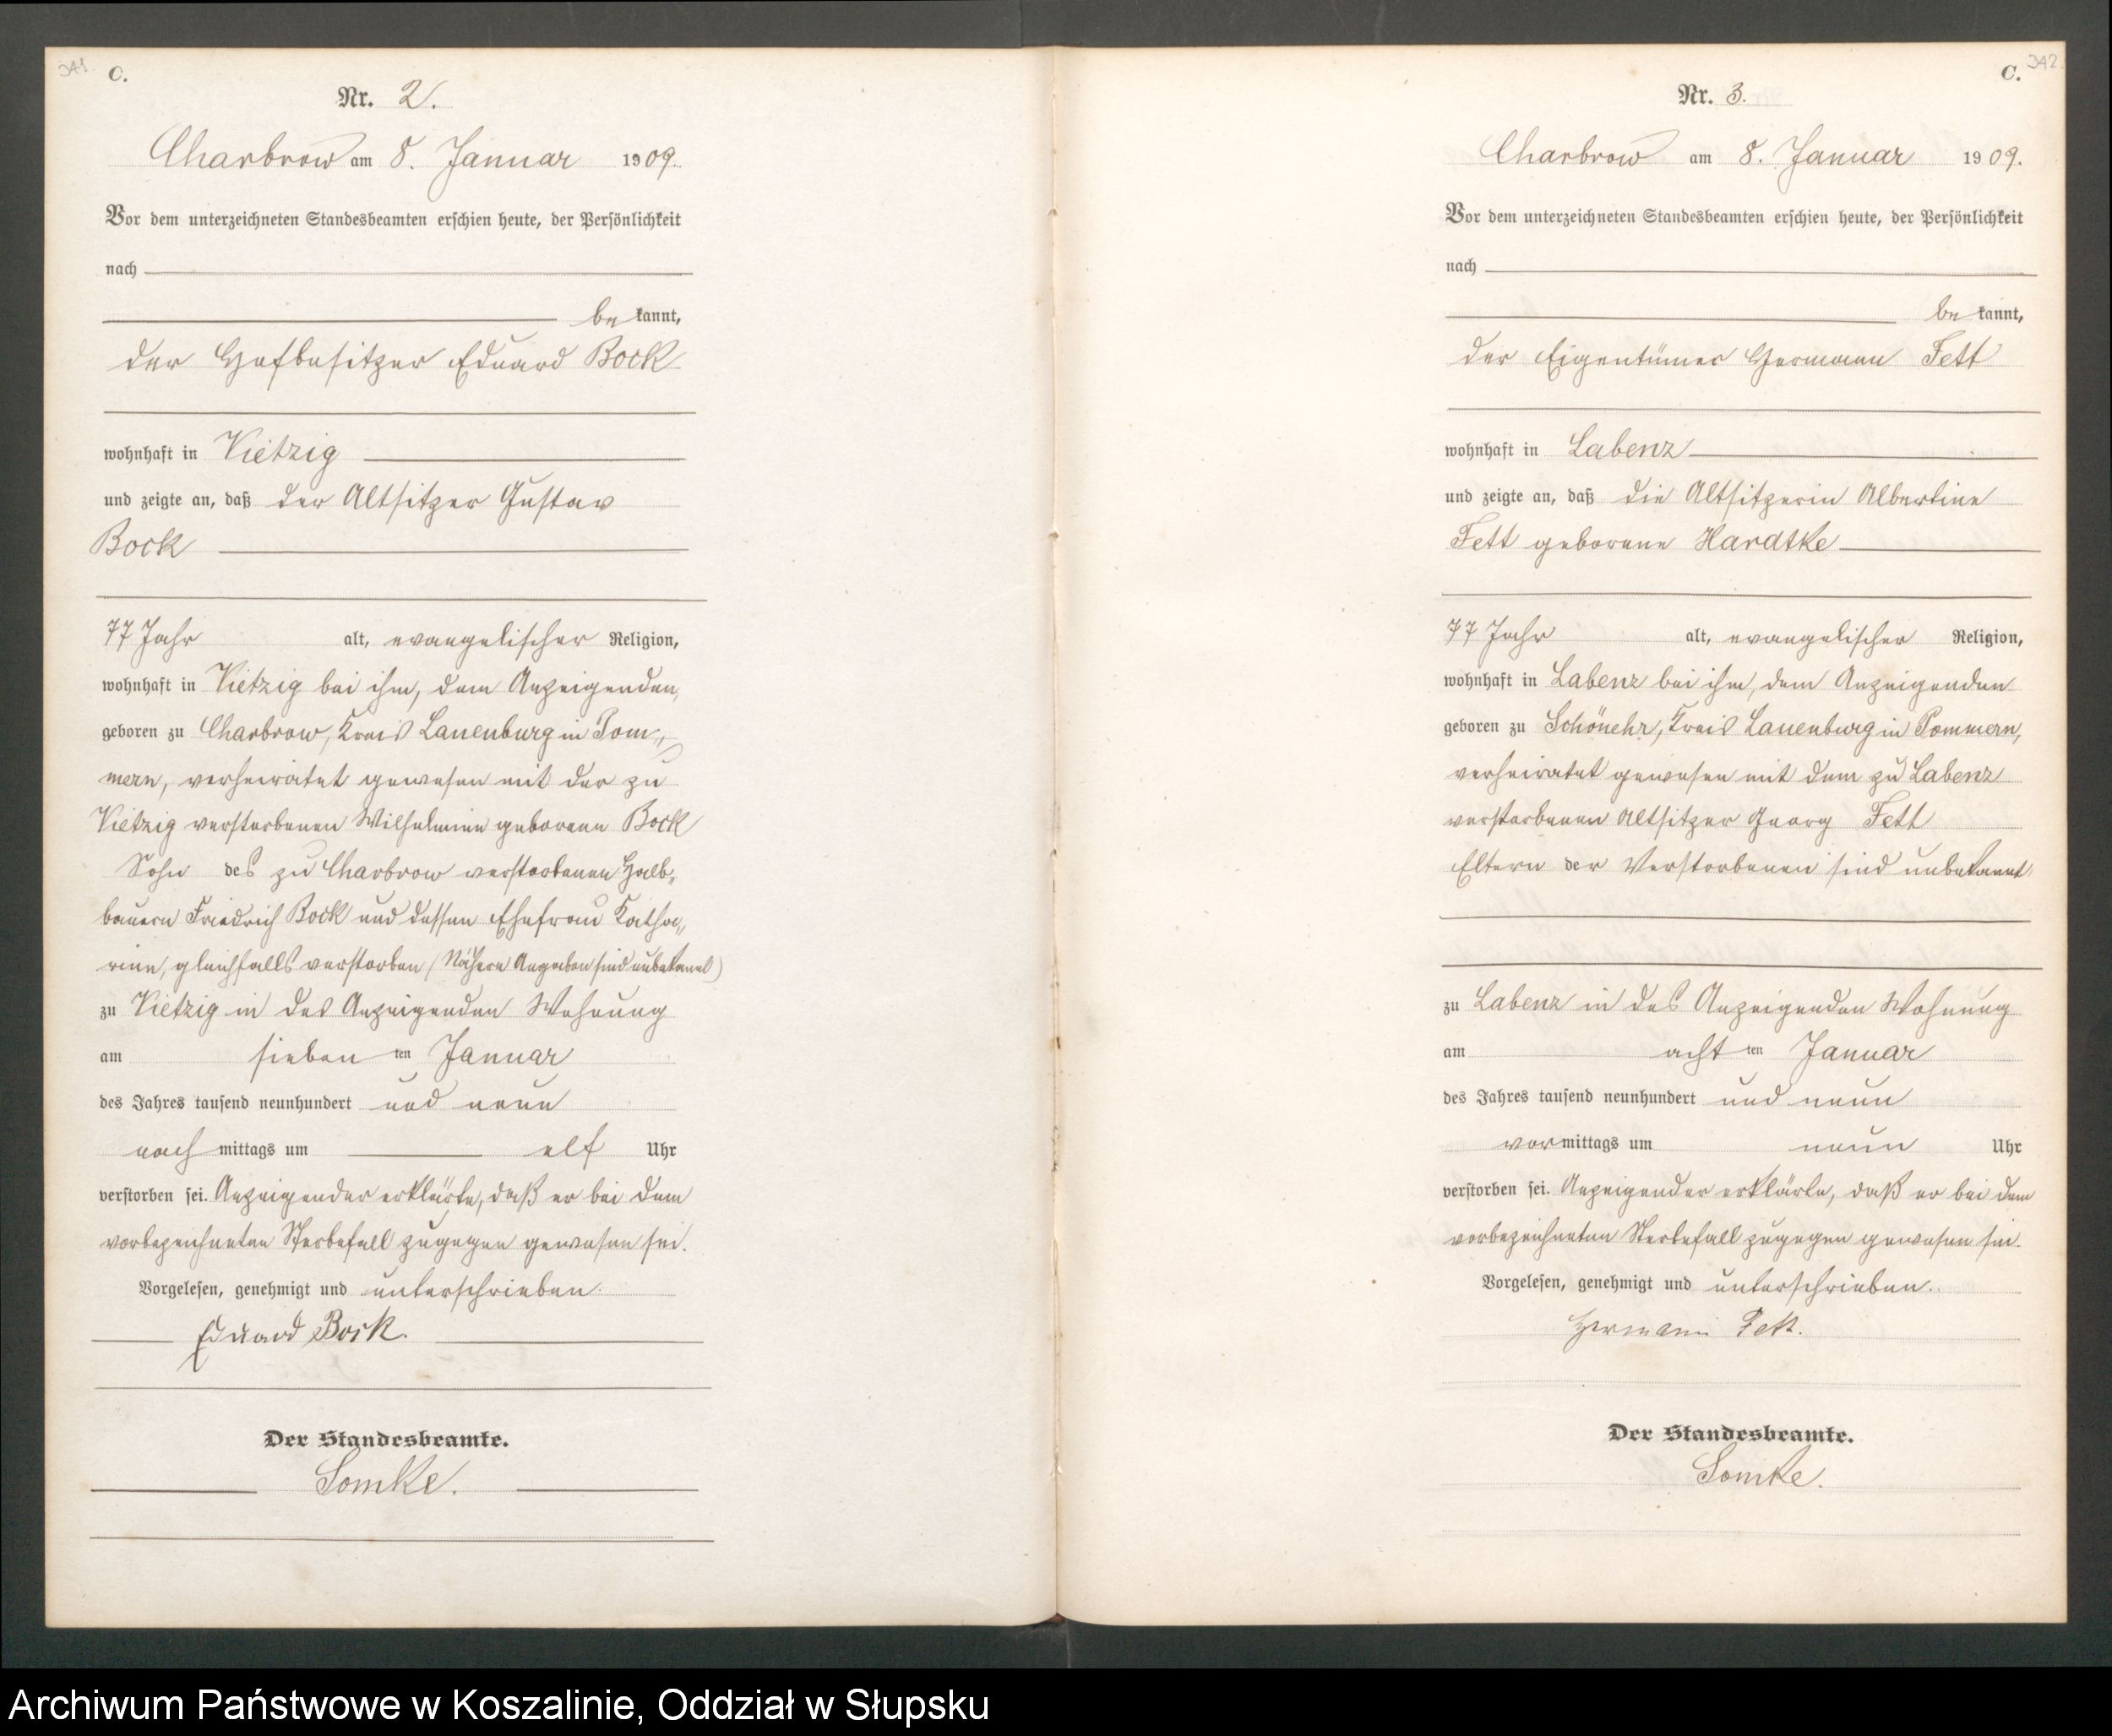 341. C.
Nr. 2.
Charbrow am 8. Januar 1909.
Vor dem unterzeichneten Standesbeamten erschien heute, der Persönlichkeit
nach
be kannt,
der Hofbesitzer Eduard Bock
wohnhaft in Vietzig
und zeigte an, daß der Altsitzer Gustav
Bock
77 Jahr alt, evangelischer Religion,
wohnhaft in Vietzig bei ihm, dem Anzeigenden,
geboren zu Charbrow, Kreis Lauenburg in Pom„
mern, verheiratet gewesen mit der zu
Vietzig verstorbenen Wilhelmine geborene Bock
Sohn des zu Charbrow verstorbenen Halb„
bauern Friedrich Bock und dessen Ehefrau Katha„
rine, gleichfalls verstorben (Nähere Angaben sind unbekannt)
zu Vietzig in des Anzeigenden Wohnung
am sieben ten Januar
des Jahres tausend neunhundert und neun
nach mittags um elf Uhr
verstorben sei. Anzeigender erklärte, daß er bei dem
vorbezeichneten Sterbefall zugegen gewesen sei.
Vorgelesen, genehmigt und unterschrieben.
Eduard Bock.
Der Standesbeamte.
Lomke.
C. 342.
Nr. 3.
Charbrow am 8. Januar 1909.
Vor dem unterzeichneten Standesbeamten erschien heute, der Persönlichkeit
nach
be kannt,
der Eigentümer Hermann Fett
wohnhaft in Labenz
und zeigte an, daß die Altsitzerin Albertine
Fett geborene Hardtke
77 Jahr alt, evangelischer Religion,
wohnhaft in Labenz bei ihm, dem Anzeigenden
geboren zu Schönehr, Kreis Lauenburg in Pommern,
verheiratet gewesen mit dem zu Labenz
verstorbenen Altsitzer Georg Fett
Eltern der Verstorbenen sind unbekannt
zu Labenz in des Anzeigenden Wohnung
am acht ten Januar
des Jahres tausend neunhundert und neun
vor mittags um neun Uhr
verstorben sei. Anzeigender erklärte, daß er bei dem
vorbezeichneten Sterbefall zugegen gewesen sei.
Vorgelesen, genehmigt und unterschrieben.
Hermann Fett.
Der Standesbeamte.
Lomke.
Archiwum Państwowe w Koszalinie, Oddział w Słupsku